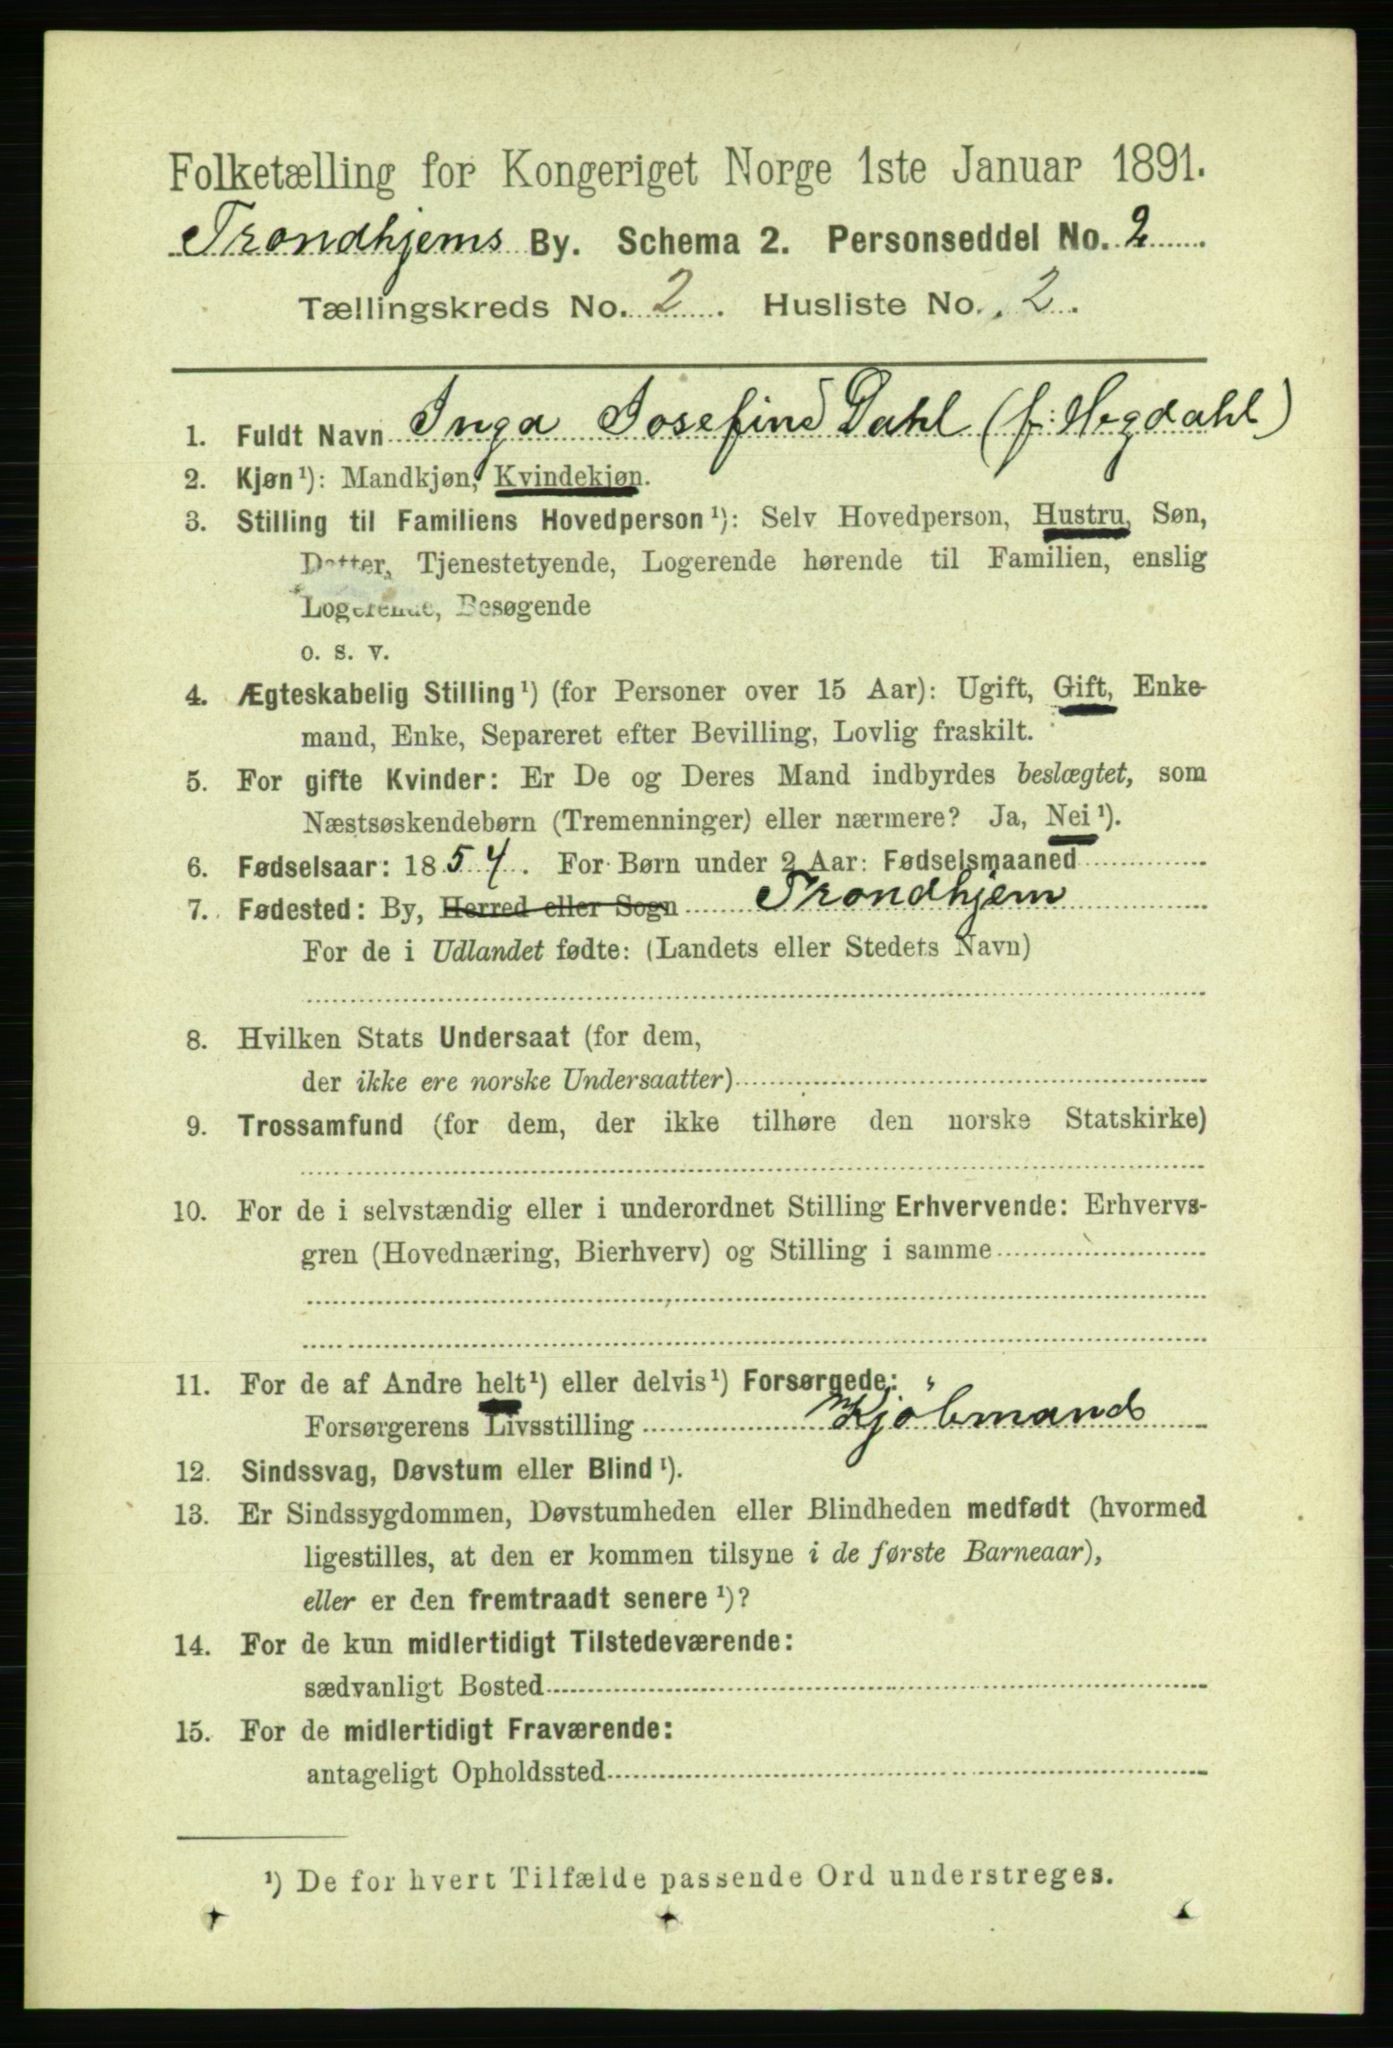 Folketælling for Kongeriget Norge 1ste Januar 1891.
Trondhjems By. Schema 2. Personseddel No. 2
Tællingskreds No. 2. Husliste No. 2.
1. Fuldt Navn Inga Josefine Dahl (f: Hegdahl)
2. Kjøn¹): Mandkjøn, Kvindekjøn.
3. Stilling til Familiens Hovedperson¹): Selv Hovedperson, Hustru, Søn,
Datter, Tjenestetyende, Logerende hørende til Familien, enslig
Logerende, Besøgende
o. s. v.
4. Ægteskabelig Stilling¹) (for Personer over 15 Aar): Ugift, Gift, Enke-
mand, Enke, Separeret efter Bevilling, Lovlig fraskilt.
5. For gifte Kvinder: Er De og Deres Mand indbyrdes beslægtet, som
Næstsøskendebørn (Tremenninger) eller nærmere? Ja, Nei¹).
6. Fødselsaar: 1854. For Børn under 2 Aar: Fødselsmaaned
7. Fødested: By, Herred eller Sogn Trondhjem
For de i Udlandet fødte: (Landets eller Stedets Navn)
8. Hvilken Stats Undersaat (for dem,
der ikke ere norske Undersaatter)
9. Trossamfund (for dem, der ikke tilhøre den norske Statskirke)
10. For de i selvstændig eller i underordnet Stilling Erhvervende: Erhvervs-
gren (Hovednæring, Bierhverv) og Stilling i samme
11. For de af Andre helt¹) eller delvis¹) Forsørgede:
Forsørgerens Livsstilling Kjøbmand
12. Sindssvag, Døvstum eller Blind¹).
13. Er Sindssygdommen, Døvstumheden eller Blindheden medfødt (hvormed
ligestilles, at den er kommen tilsyne i de første Barneaar),
eller er den fremtraadt senere¹)?
14. For de kun midlertidigt Tilstedeværende:
sædvanligt Bosted
15. For de midlertidigt Fraværende:
antageligt Opholdssted
¹) De for hvert Tilfælde passende Ord understreges.